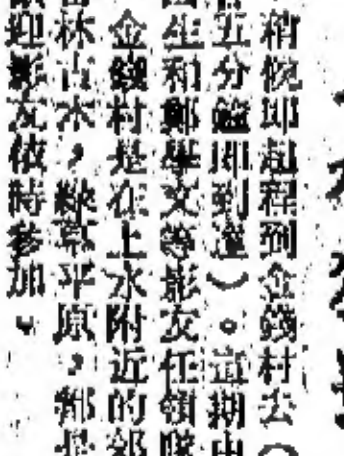 稍候即起程到金錢村去（
五分鐘即到達）。這期由
生和鄭學文等影友任領隊
金錢村是在上水附近的郊
林古木，綠草平原，都是
迎影友依時參加。